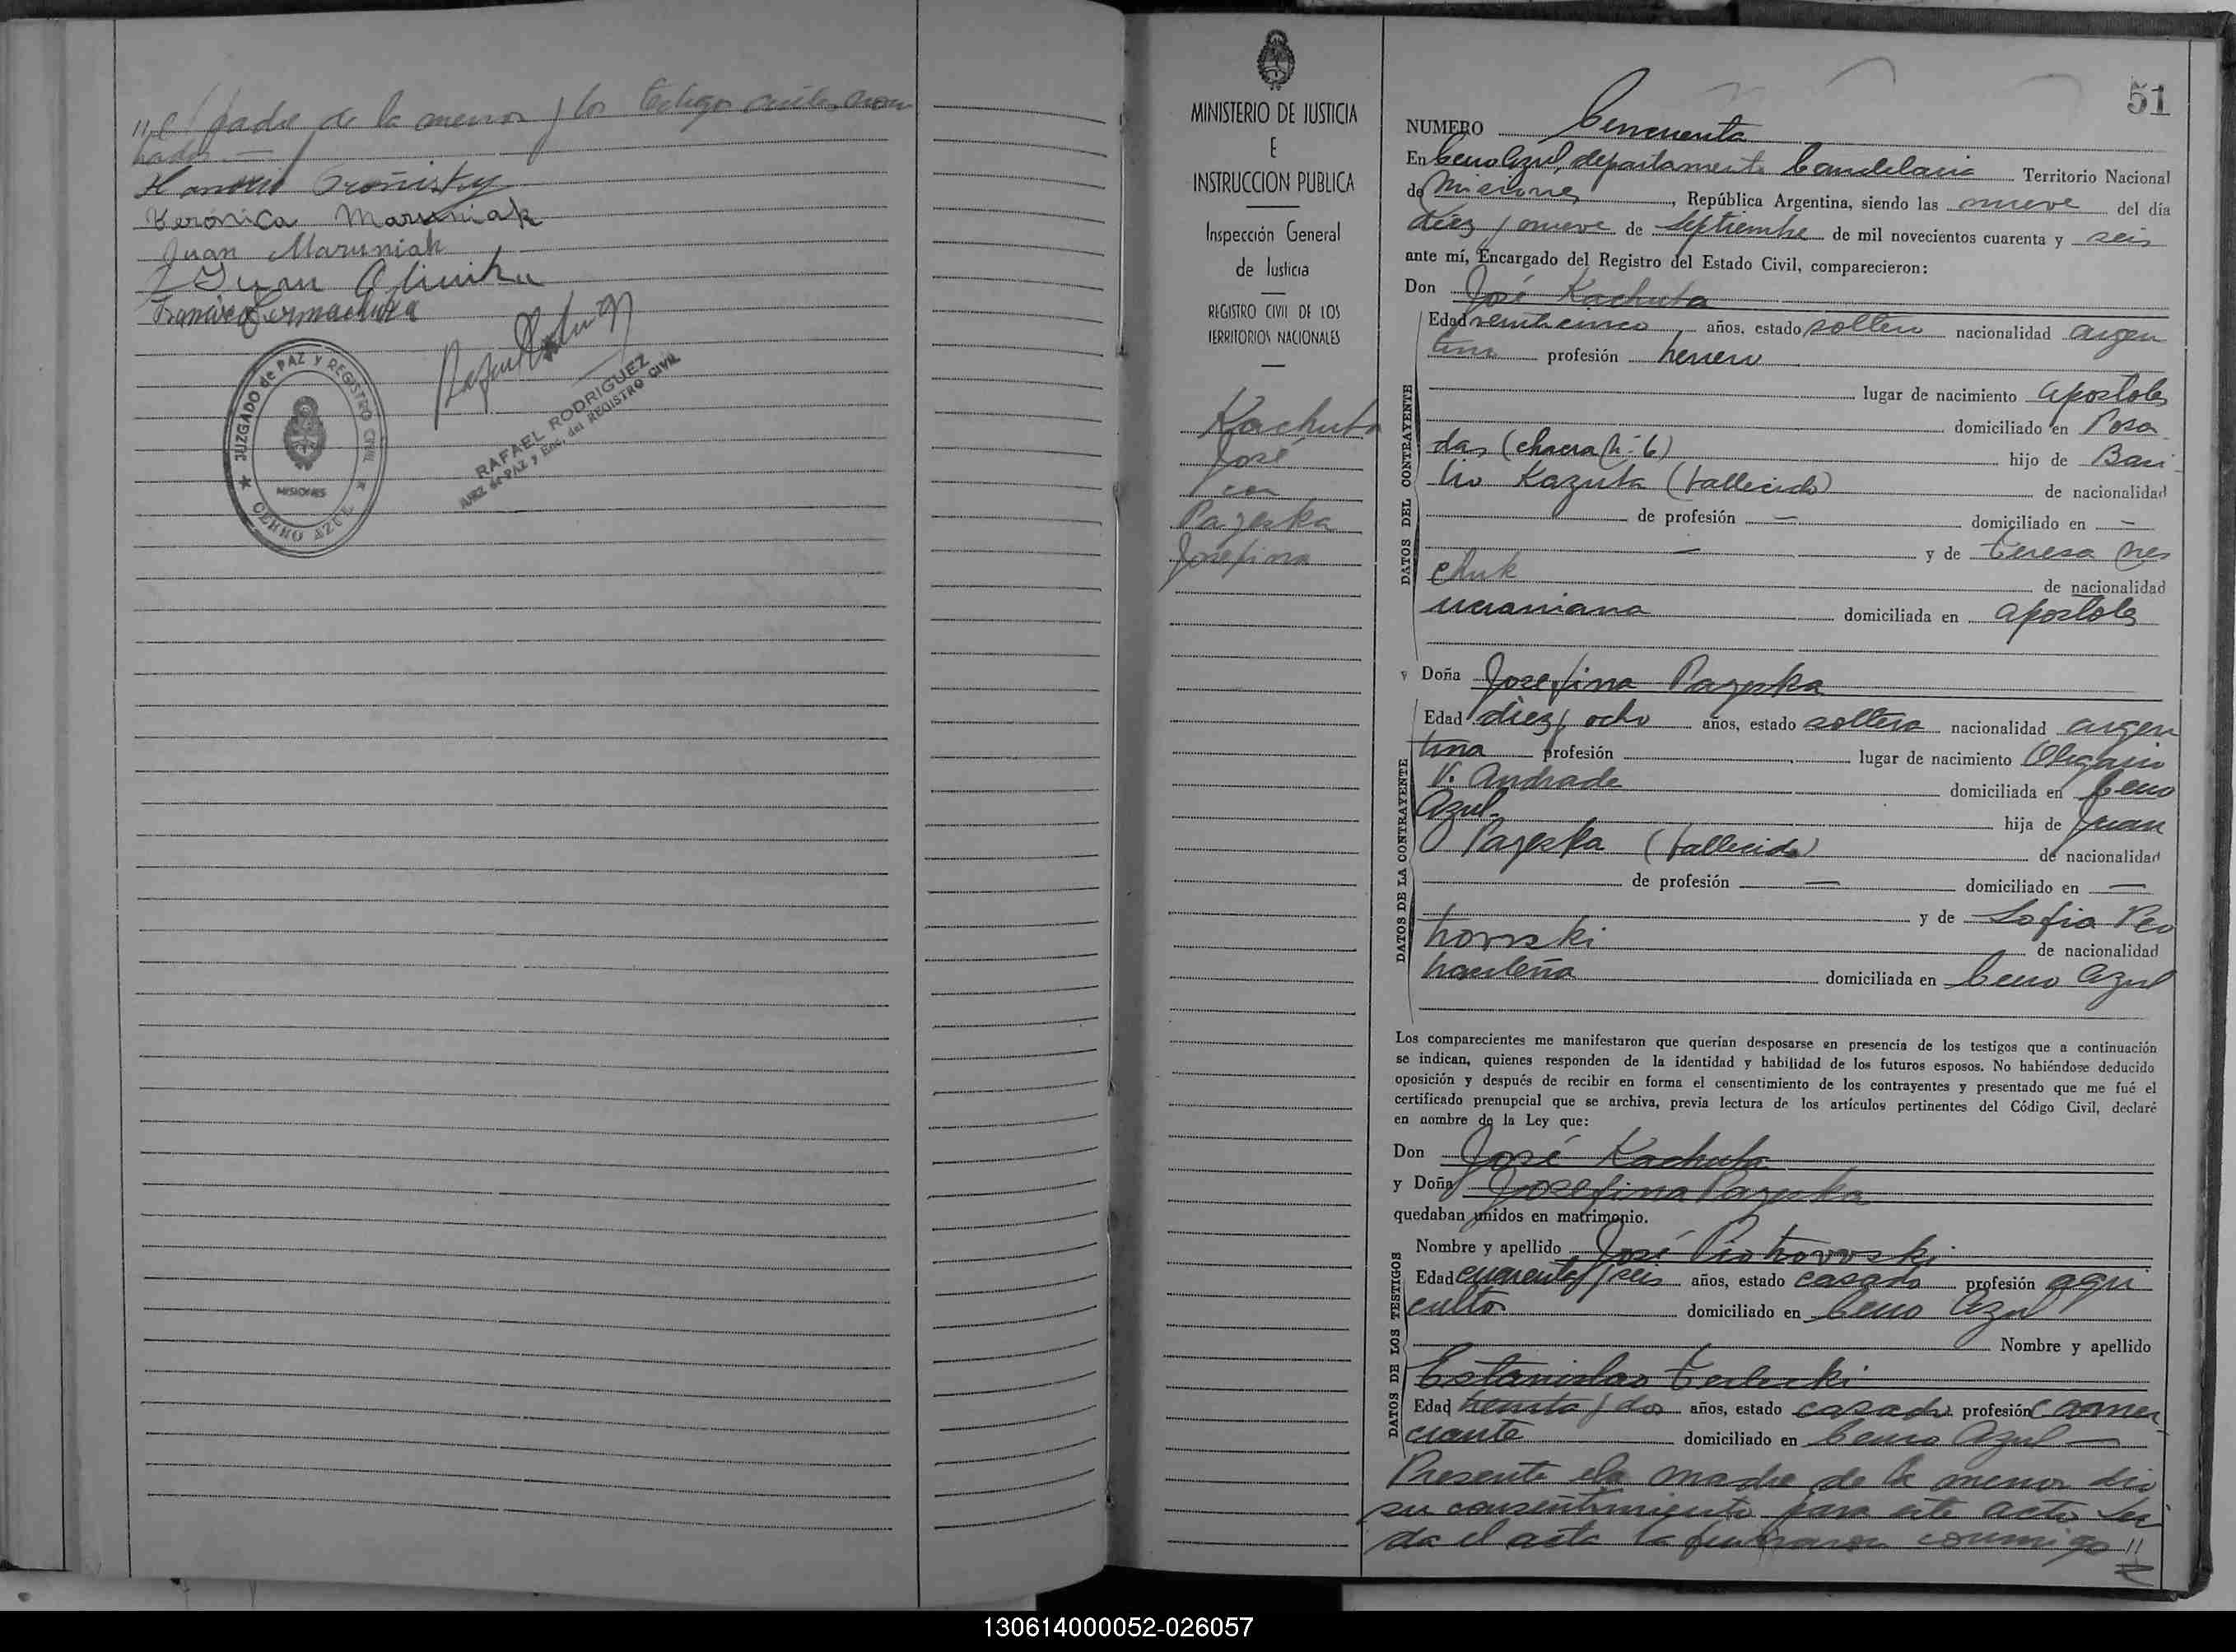 "el padre de la menor y los testigos antes nom
brados.—
Verónica Maruniak
Juan Maruniak
Juan
Francisco
JUZGADO de PAZ y REGISTRO CIVIL
MISIONES
CERRO AZUL
RAFAEL RODRIGUEZ
JUEZ de PAZ y Enc. del REGISTRO CIVIL
MINISTERIO DE JUSTICIA
E
INSTRUCCION PUBLICA
Inspección General
de Justicia
REGISTRO CIVIL DE LOS
TERRITORIOS NACIONALES
Kachuta
José
con
Pazeska
Josefina
51
NUMERO Cincuenta
En Cerro Azul, departamento Candelaria Territorio Nacional
de Misiones, República Argentina, siendo las nueve del día
diez y nueve de Septiembre de mil novecientos cuarenta y seis
ante mí, Encargado del Registro del Estado Civil, comparecieron:
Don José Kachuta
DATOS DEL CONTRAYENTE
Edad veinticinco años, estado soltero nacionalidad argen
tina profesión herrero
lugar de nacimiento Apostoles
domiciliado en Posa
das (chacra N- 6) hijo de Basi
lio Kazuta (fallecido) de nacionalidad
de profesión — domiciliado en —
— y de Teresa Mes
chuk de nacionalidad
ucraniana domiciliada en Apostoles
y Doña Josefina Pazeska
DATOS DE LA CONTRAYENTE
Edad diez y ocho años, estado soltera nacionalidad argen
tina profesión lugar de nacimiento Olegario
V. Andrade domiciliada en Cerro
Azul. hija de Juan
Pazeska (fallecido) de nacionalidad
de profesión — domiciliado en —
y de Sofia Pio
trovski de nacionalidad
brasileña domiciliada en Cerro Azul
Los comparecientes me manifestaron que querían desposarse en presencia de los testigos que a continuación
se indican, quienes responden de la identidad y habilidad de los futuros esposos. No habiéndose deducido
oposición y después de recibir en forma el consentimiento de los contrayentes y presentado que me fué el
certificado prenupcial que se archiva, previa lectura de los artículos pertinentes del Código Civil, declaré
en nombre de la Ley que:
Don José Kachuta
y Doña Josefina Pazeska
quedaban unidos en matrimonio.
DATOS DE LOS TESTIGOS
Nombre y apellido José Piotrovski
Edad cuarenta y seis años, estado casado profesión agri
cultor domiciliado en Cerro Azul
Nombre y apellido
Estanislao Terlecki
Edad treinta y dos años, estado casado profesión comer
ciante domiciliado en Cerro Azul —
Presente la madre de la menor dio
su consentimiento para este acto. Leí
da el acta la firmaron conmigo "
130614000052-026057